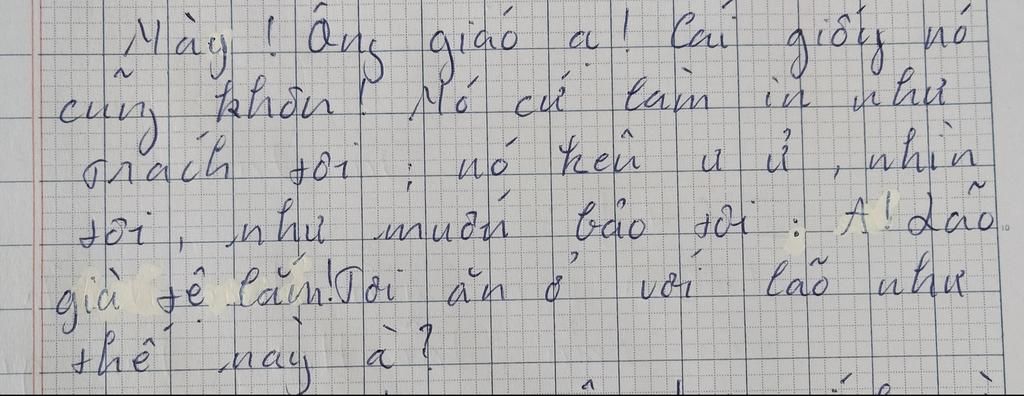 Này! Ông giáo ạ! Cái giống nó
cũng khôn! Nó cứ làm in như
trách tôi; nó kêu ư ử, nhìn
tôi, như muốn bảo tôi: A! Lão
già tệ lắm! Tôi ăn ở với lão như
thế này à?